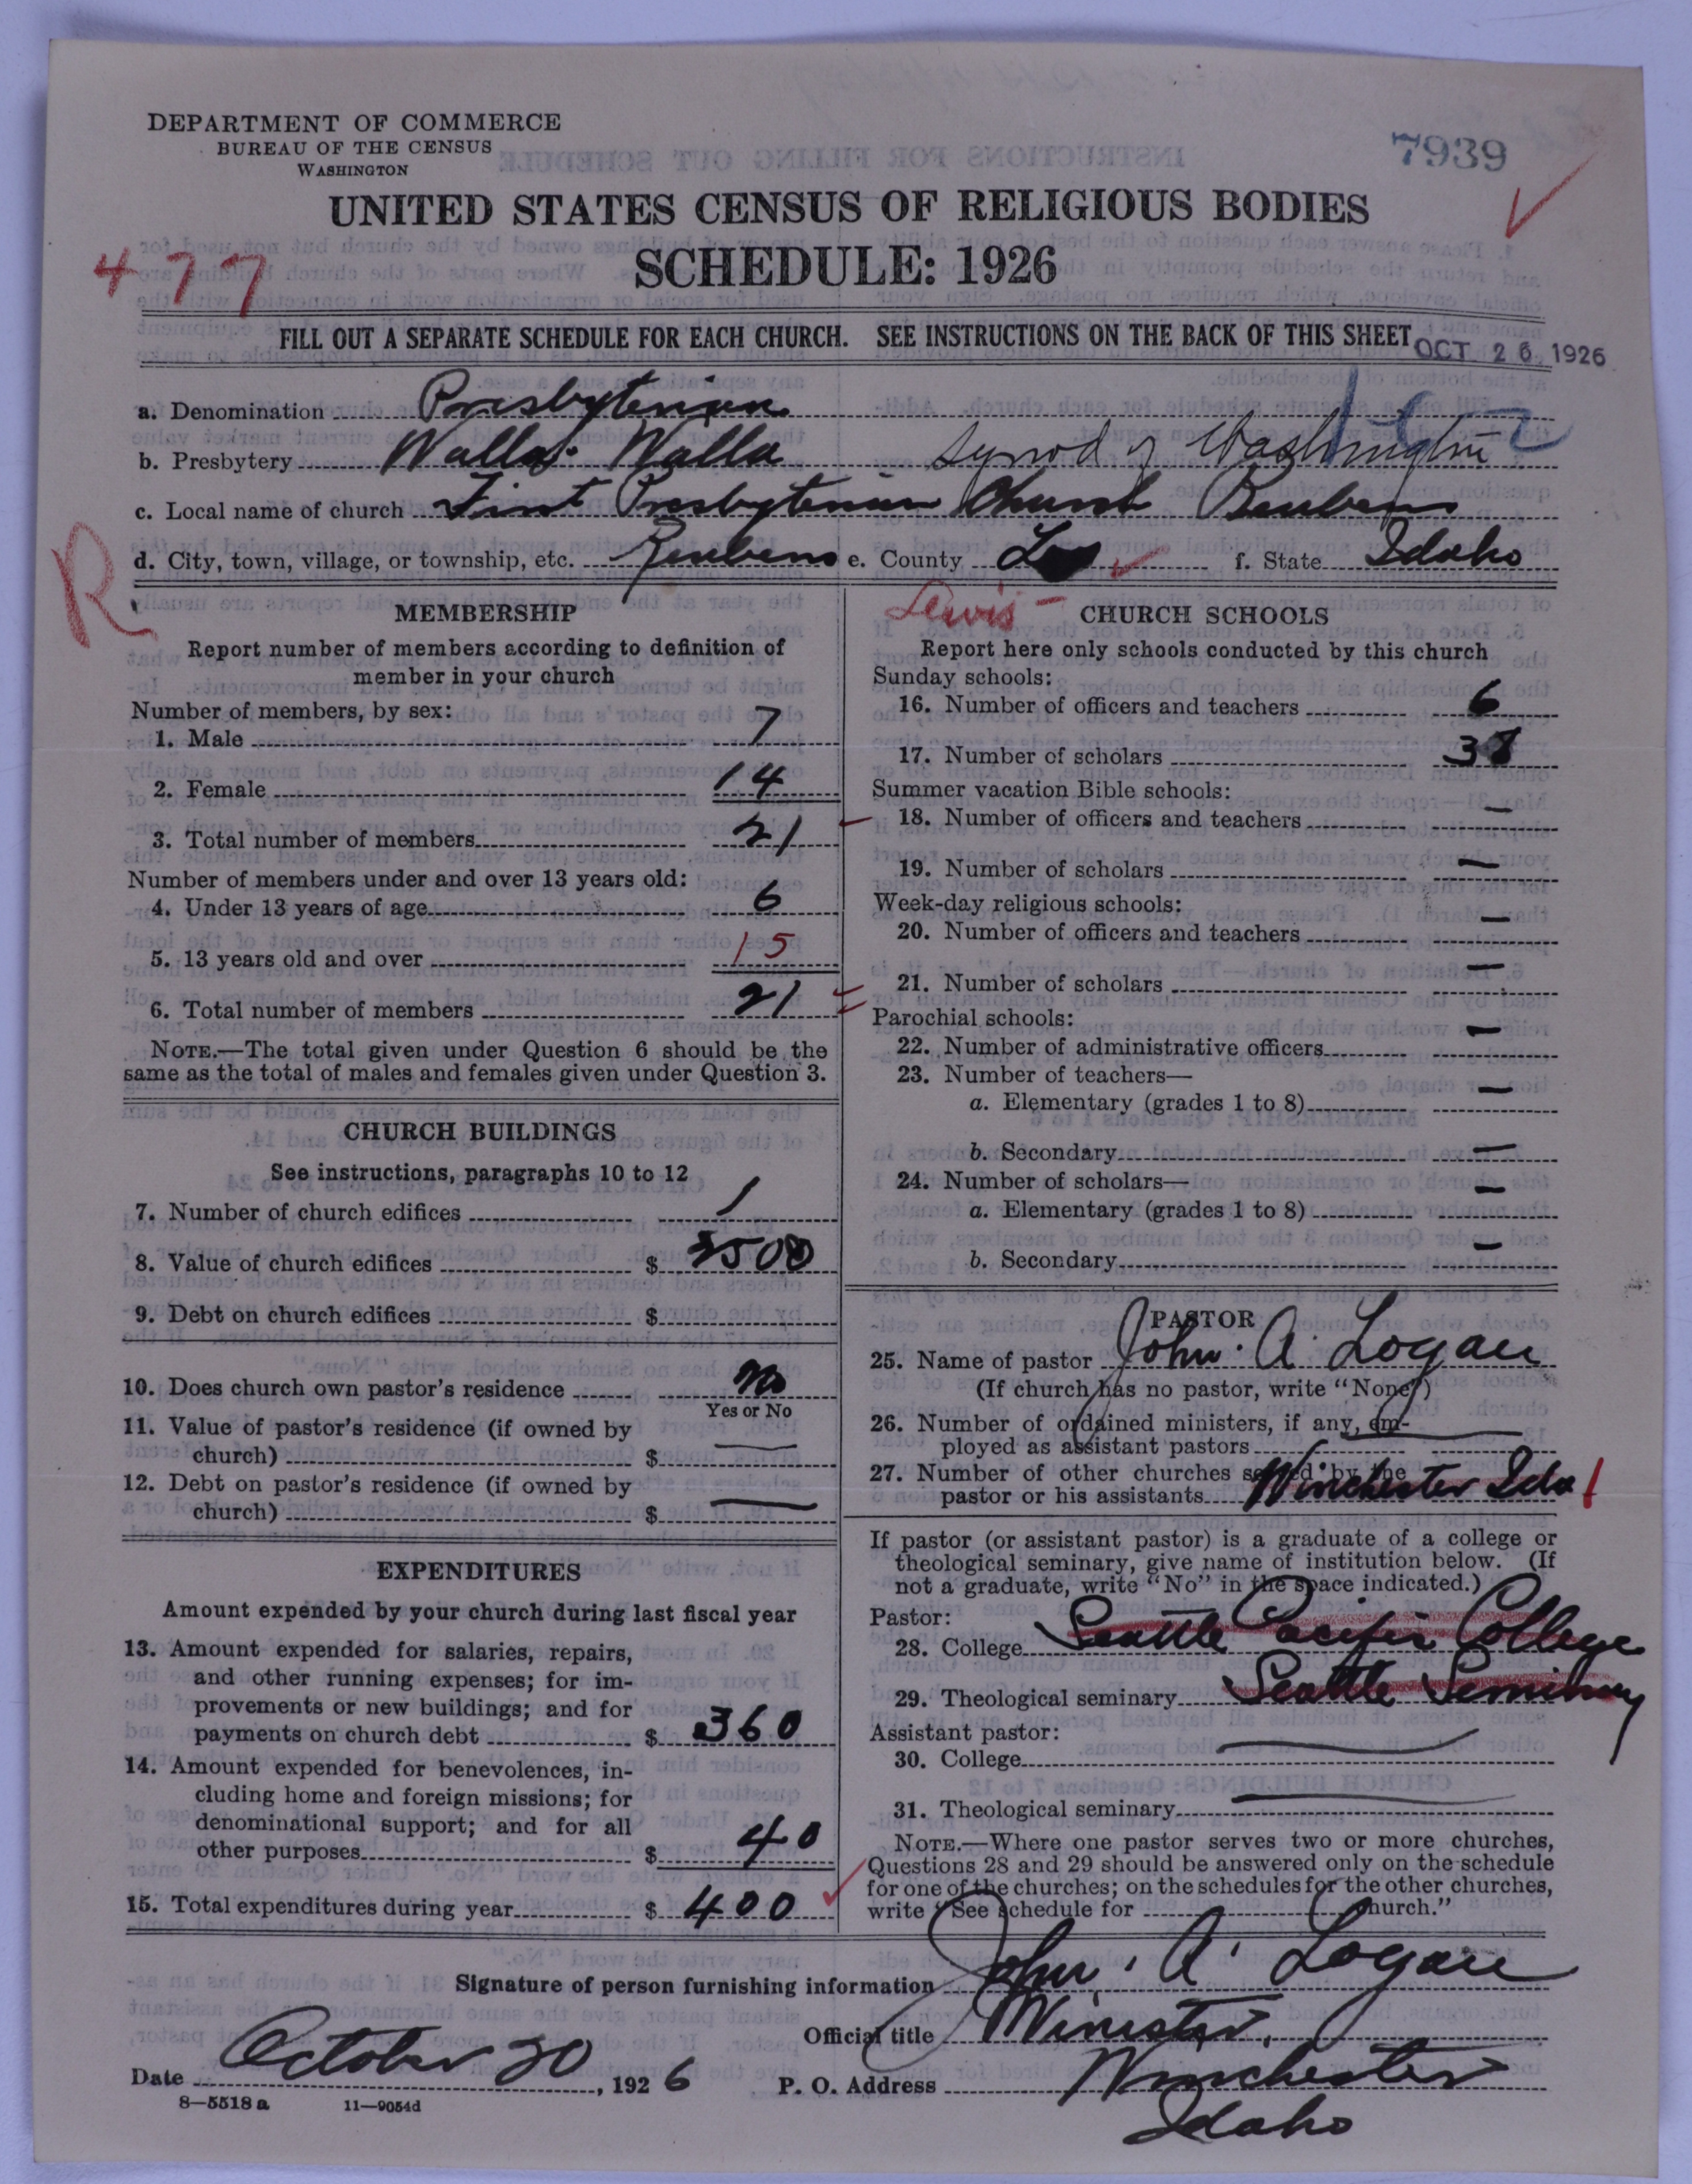 DEPARTMENT OF COMMERCE
BUREAU OF THE CENSUS
WASHINGTON
7939
UNITED STATES CENSUS OF RELIGIOUS BODIES
SCHEDULE: 1926
477
FILL OUT A SEPARATE SCHEDULE FOR EACH CHURCH. SEE INSTRUCTIONS ON THE BACK OF THIS SHEET
OCT 26 1926
a. Denomination Presbyterian
b. Presbytery Walla Walla Synod of Washington
c. Local name of church First Presbyterian Church Reubens
d. City, town, village, or township, etc. Reubens e. County f. State Idaho
R
Lewis
MEMBERSHIP
Report number of members according to definition of
member in your church
Number of members, by sex:
1. Male 7
2. Female 14
3. Total number of members 21
Number of members under and over 13 years old:
4. Under 13 years of age 6
5. 13 years old and over 15
6. Total number of members 21
NOTE.—The total given under Question 6 should be the
same as the total of males and females given under Question 3.
CHURCH BUILDINGS
See instructions, paragraphs 10 to 12
7. Number of church edifices 1
8. Value of church edifices $ 3500
9. Debt on church edifices $
10. Does church own pastor's residence No
Yes or No
11. Value of pastor's residence (if owned by
church) $ —
12. Debt on pastor's residence (if owned by
church) $ —
EXPENDITURES
Amount expended by your church during last fiscal year
13. Amount expended for salaries, repairs,
and other running expenses; for im-
provements or new buildings; and for
payments on church debt $ 360
14. Amount expended for benevolences, in-
cluding home and foreign missions; for
denominational support; and for all
other purposes $ 40
15. Total expenditures during year $ 400
CHURCH SCHOOLS
Report here only schools conducted by this church
Sunday schools:
16. Number of officers and teachers 6
17. Number of scholars 38
Summer vacation Bible schools:
18. Number of officers and teachers —
19. Number of scholars —
Week-day religious schools:
20. Number of officers and teachers —
21. Number of scholars —
Parochial schools:
22. Number of administrative officers —
23. Number of teachers—
a. Elementary (grades 1 to 8) —
b. Secondary —
24. Number of scholars—
a. Elementary (grades 1 to 8) —
b. Secondary —
PASTOR
25. Name of pastor John. A. Logan
(If church has no pastor, write "None")
26. Number of ordained ministers, if any, em-
ployed as assistant pastors —
27. Number of other churches served by the
pastor or his assistants Winchester Ida 1
If pastor (or assistant pastor) is a graduate of a college or
theological seminary, give name of institution below. (If
not a graduate, write "No" in the space indicated.)
Pastor:
28. College Seattle Pacific College
29. Theological seminary Seattle Seminary
Assistant pastor:
30. College —
31. Theological seminary —
NOTE.—Where one pastor serves two or more churches,
Questions 28 and 29 should be answered only on the schedule
for one of the churches; on the schedules for the other churches,
write "See schedule for church."
Signature of person furnishing information John. A. Logan
Official title Minister.
Date October 20, 1926 P. O. Address Winchester
Idaho
8—5518 a 11—9054d